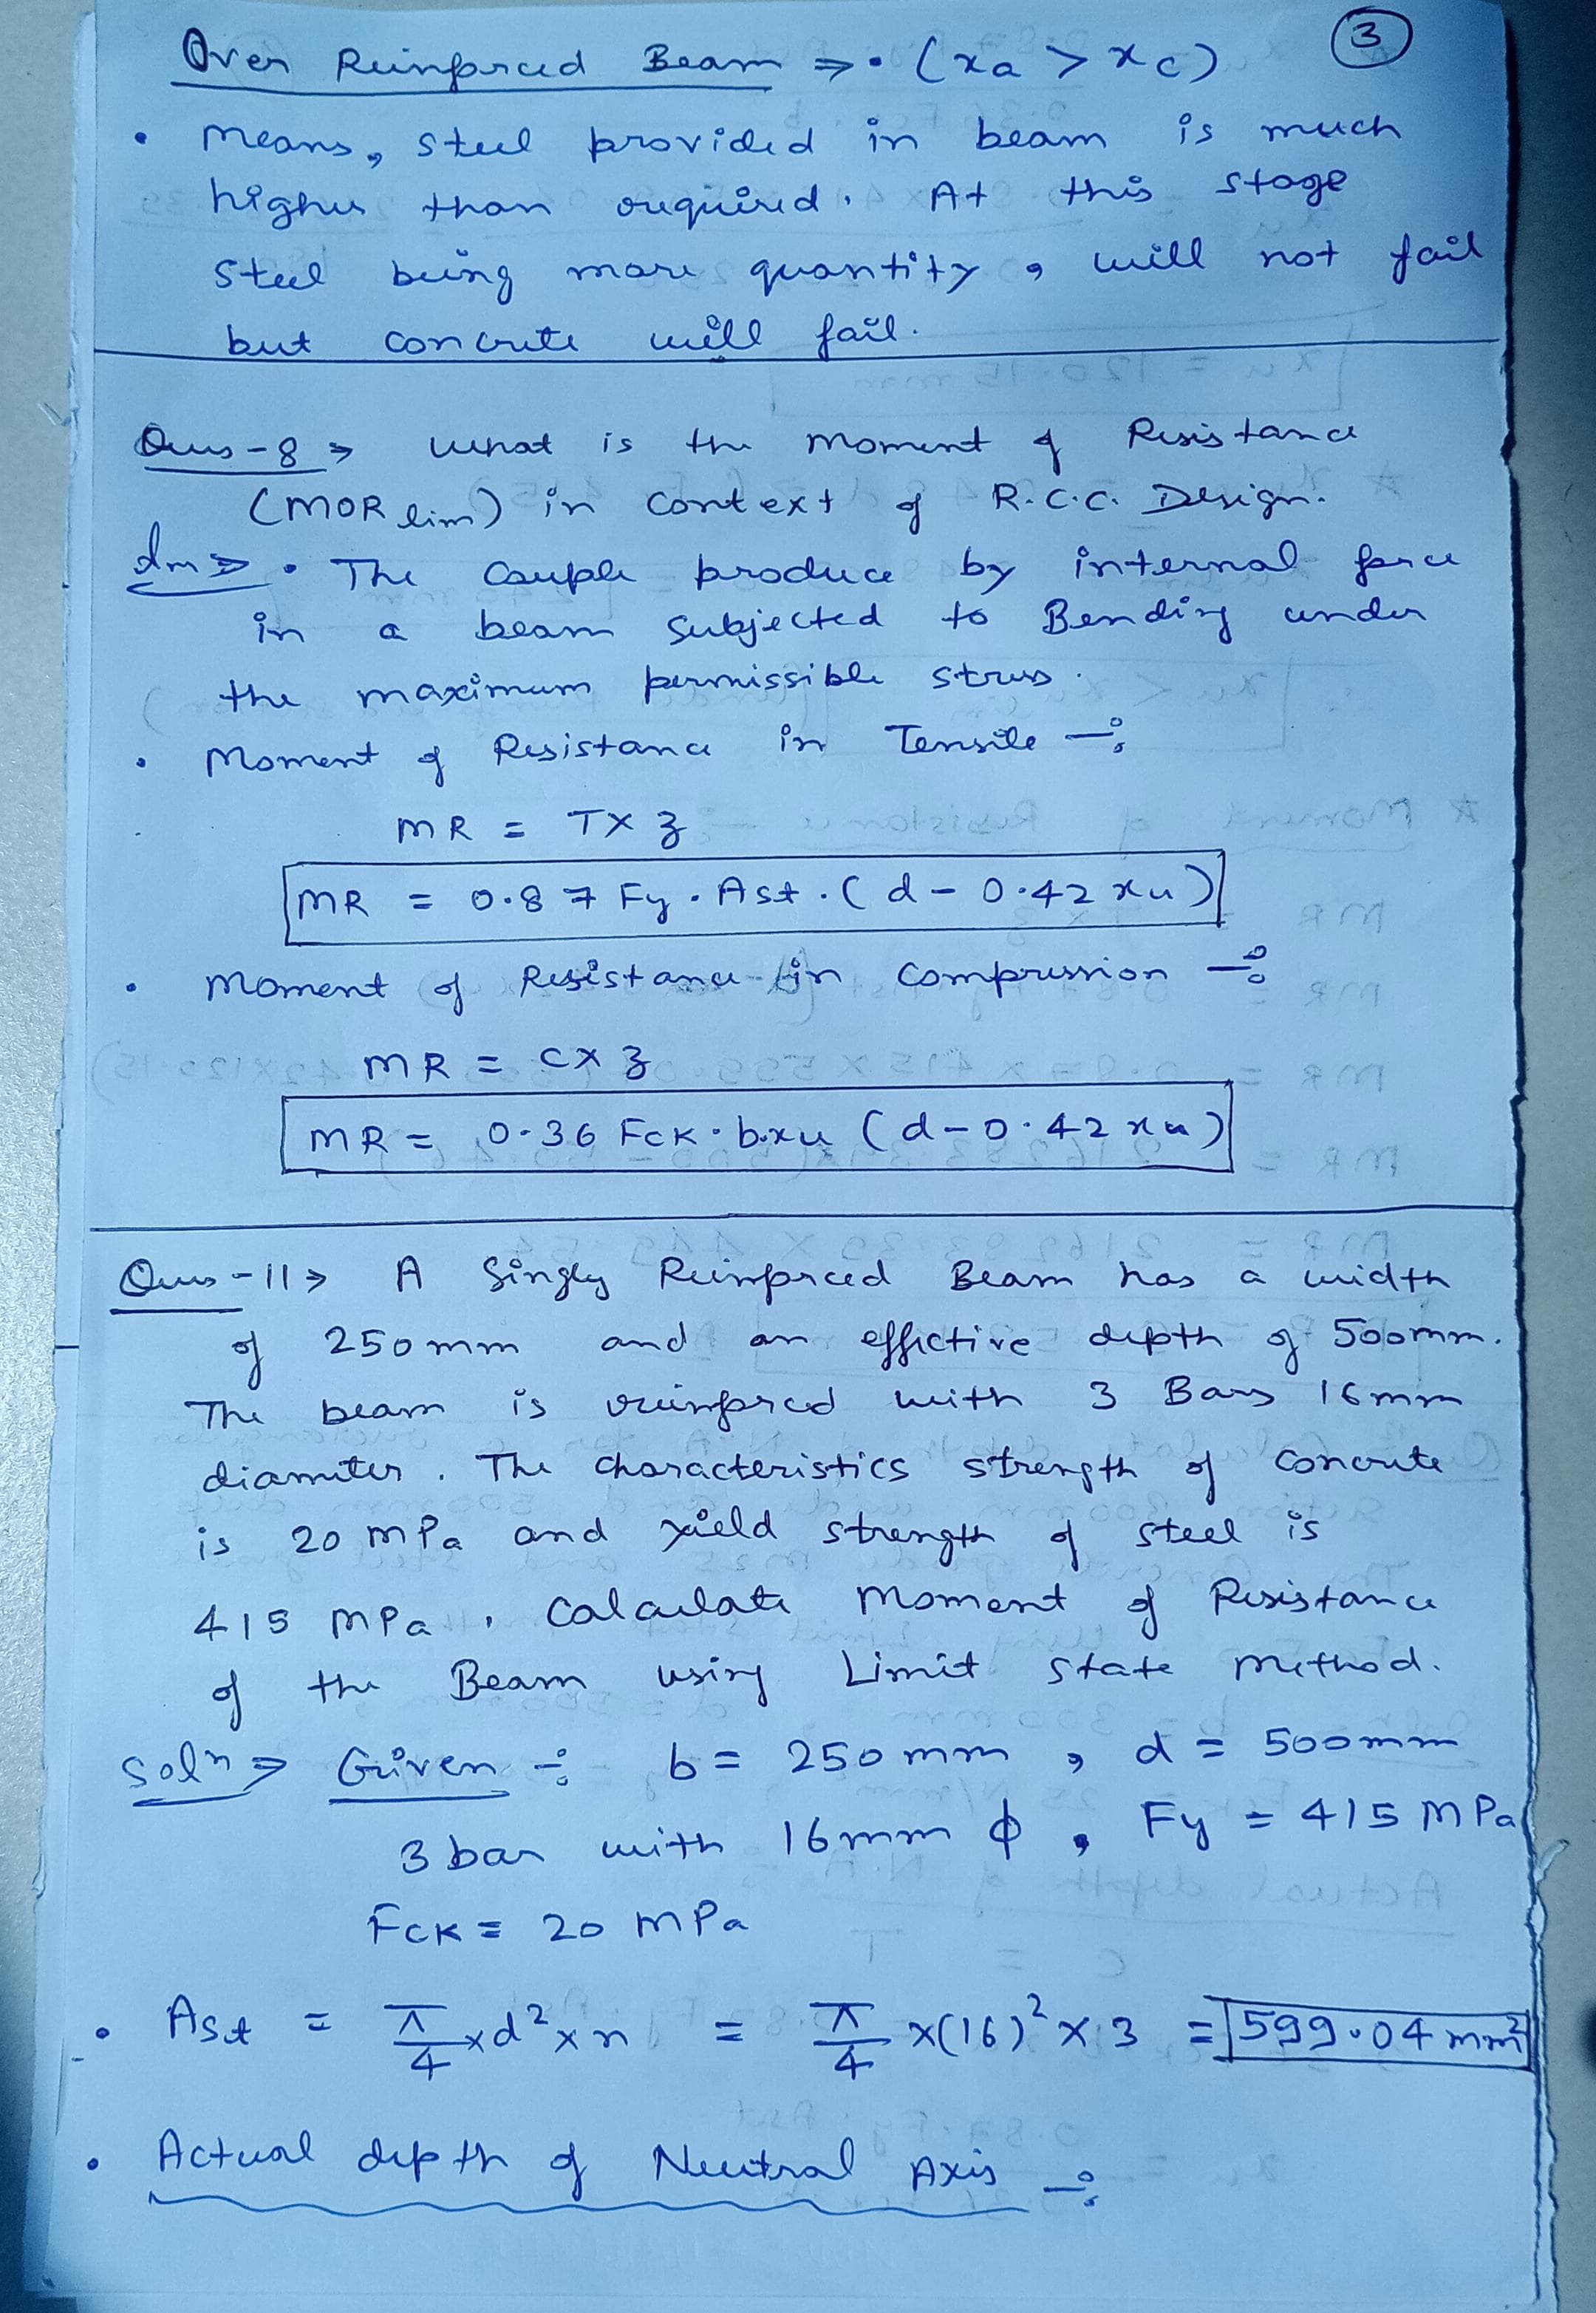 Over Reinforced Beam ⇒ • (xa > xc) 3
• Means, steel provided in beam is much
higher than required. At this stage
steel being more quantity, will not fail
but concrete will fail.
Ques-8 ⇒ What is the Moment of Resistance
(MOR lim) in context of R.C.C. Design.
Ans ⇒ • The couple produce by internal force
in a beam subjected to Bending under
the maximum permissible stress.
• Moment of Resistance in Tensile :-
MR = T × z
MR = 0.87 Fy . Ast . (d - 0.42 xu)
• Moment of Resistance in compression :-
MR = C × z
MR = 0.36 Fck . b.xu (d - 0.42 xu)
Ques-11 ⇒ A Singly Reinforced Beam has a width
of 250 mm and an effective depth of 500mm.
The beam is reinforced with 3 Bars 16mm
diameter. The characteristics strength of concrete
is 20 MPa and yield strength of steel is
415 MPa, calculate Moment of Resistance
of the Beam using Limit state method.
Solⁿ ⇒ Given :- b = 250 mm, d = 500mm
3 bar with 16mm ϕ, Fy = 415 MPa
Fck = 20 MPa
• Ast = π/4 × d² × n = π/4 × (16)² × 3 = 599.04 mm²
• Actual depth of Neutral Axis :-